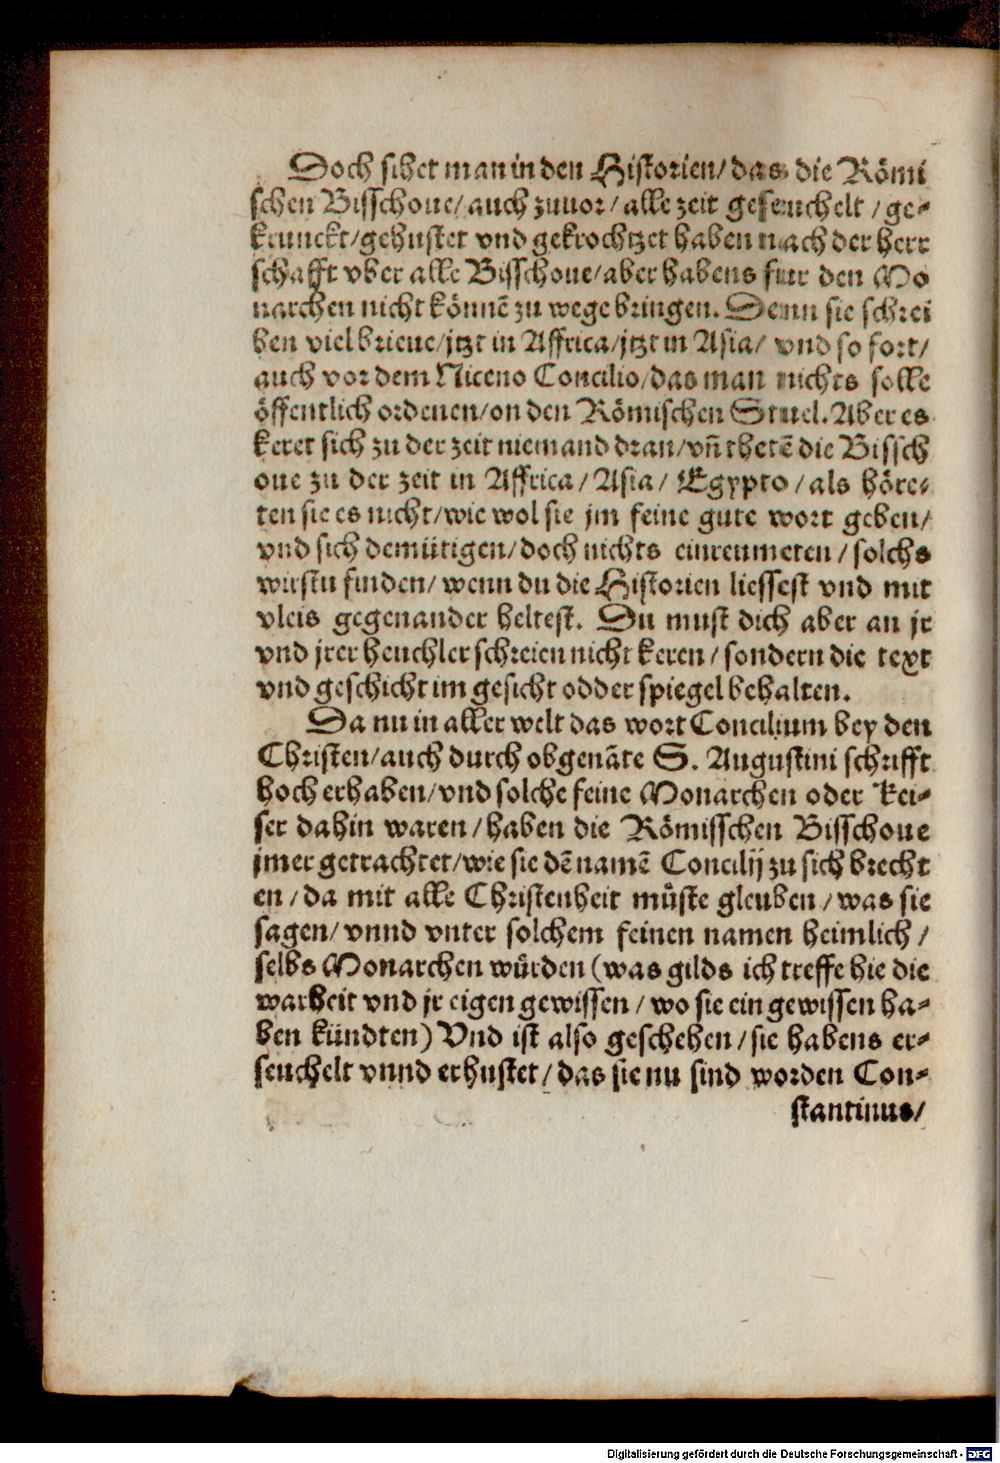 Doch sihet man in den Historien/ das die Römi
schen Bisschoue/ auch zuuor/ alle zeit geseuchelt / ge-
krunckt/ gehustet vnd gekrochtzet haben nach der herr
schafft vber alle Bisschoue/ aber habens fur den Mo
narchen nicht könnē zu wege bringen. Denn sie schrei
ben viel brieue/ jtzt in Affrica/ jtzt in Asia/ vnd so fort/
auch vor dem Niceno Concilio/ das man nichts solle
öffentlich ordenen/ on den Römischen Stuel. Aber es
keret sich zu der zeit niemand dran/ vñ thetē die Bissch
oue zu der zeit in Affrica/ Asia/ Egypto/ als höre-
ten sie es nicht/ wie wol sie jm feine gute wort geben/
vnd sich demütigen/ doch nichts einreumeten / solchs
wirstu finden/ wenn du die Historien liessest vnd mit
vleis gegenander heltest. Du must dich aber an jr
vnd jrer heuchler schreien nicht keren / sondern die text
vnd geschicht im gesicht odder spiegel behalten.
Da nu in aller welt das wort Concilium bey den
Christen/ auch durch obgenāte S. Augustini schrifft
hoch erhaben/ vnd solche feine Monarchen oder Kei-
ser dahin waren/ haben die Römisschen Bisschoue
jmer getrachtet/ wie sie dē namē Concilij zu sich brecht
en / da mit alle Christenheit müste gleuben / was sie
sagen/ vnnd vnter solchem feinen namen heimlich /
selbs Monarchen würden (was gilds ich treffe hie die
warheit vnd jr eigen gewissen / wo sie ein gewissen ha-
ben kündten) Vnd ist also geschehen / sie habens er-
seuchelt vnnd erhustet / das sie nu sind worden Con-
stantinus/
Digitalisierung gefördert durch die Deutsche Forschungsgemeinschaft - DFG